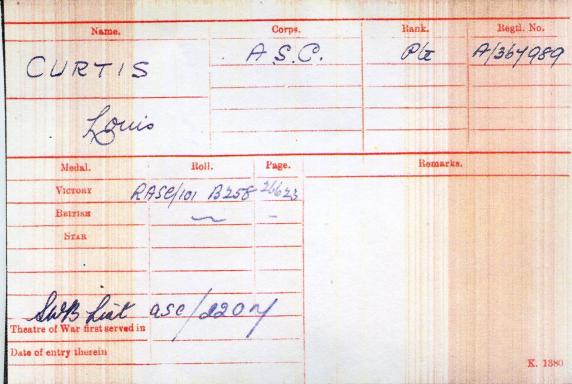 Name. Corps. Rank. Regtl. No.
CURTIS A.S.C. Pte A/367989
Louis
Medal. Roll. Page. Remarks.
VICTORY RASC/101 B258 26623
BRITISH
STAR
SWB List ASC/2207
Theatre of War first served in
Date of entry therein
K. 1380